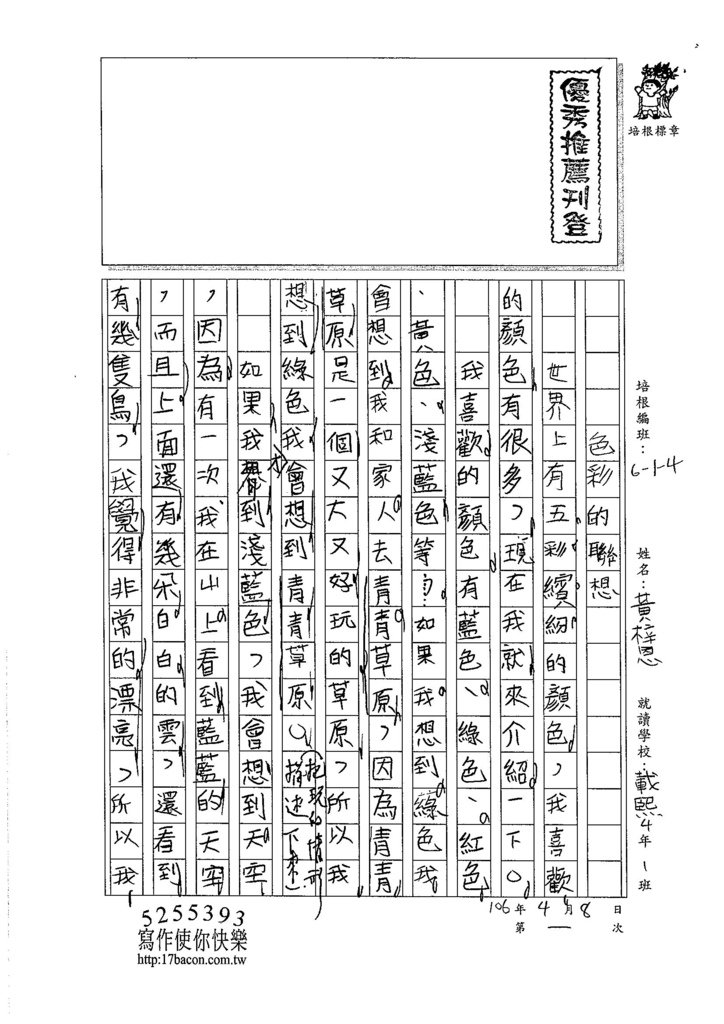 優秀推薦刊登
培根標章
培根編班：6-1-4
姓名：黃梓恩
就讀學校：載熙4年1班
106年4月8日
第一次
色彩的聯想
世界上有五彩繽紛的顏色，我喜歡
的顏色有很多，現在我就來介紹一下。
我喜歡的顏色有藍色、綠色、紅色
、黃色、淺藍色等……如果我想到綠色我
會想到我和家人去青青草原，因為青青
草原是一個又大又好玩的草原，所以我
想到綠色我會想到青青草原。
把玩的情形
描述下來
如果我看到淺藍色，我會想到天空
，因為有一次我在山上看到藍藍的天空
，而且上面還有幾朵白白的雲，還看到
有幾隻鳥，我覺得非常的漂亮，所以我
5255393
寫作使你快樂
http:17bacon.com.tw